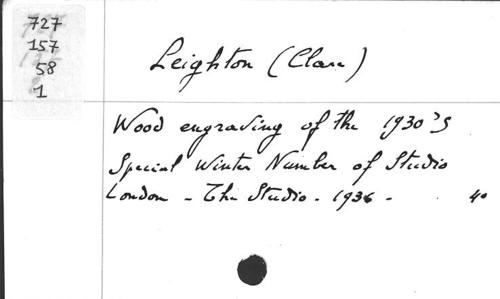 727
157
58
1
Leighton (Clare)
Wood engraving of the 1930's
Special Winter Number of Studio
London - The Studio - 1936 - 4°